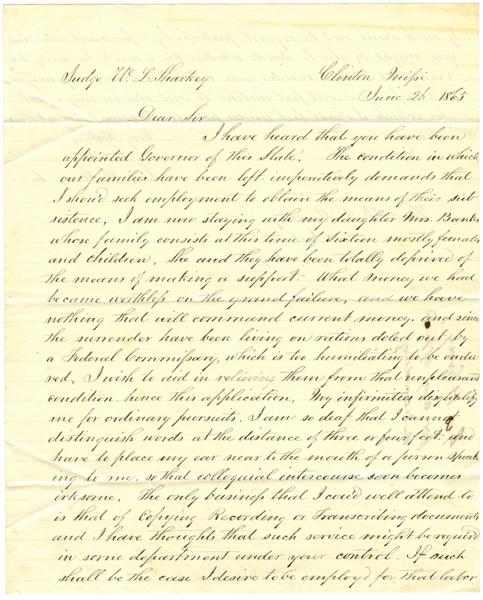 Judge W. L. Sharkey Clinton Missi
June 26 1865
Dear Sir
I have heard that you have been
appointed Governor of this State. The condition in which
our families have been left imperatively demands that
I should seek employment to obtain the means of their sub-
sistance, I am now staying with my daughter Mrs. Banks
whose family consists at this time of Sixteen mostly females
and children. She and they have been totally deprived of
the means of making a support. What money we had
became worthless on the grand failure, and we have
nothing that will command current money. And since
the surrender have been living on rations doled out by
a Federal Commissary, which is too humiliating to be endu
red. I wish to aid in relieving them from that unpleasant
condition hence this application. My infirmities disqualify
me for ordinary pursuits. I am so deaf that I cannot
distinguish words at the distance of three or four feet, and
have to place my ear near to the mouth of a person speak
ing to me, so that colloquial intercourse soon becomes
irksome. The only business that I could well attend to
is that of Copying Recording or Transcribing documents
and I have thoughts that such service might be required
in some department under your control. If such
shall be the case I desire to be employed for that labor